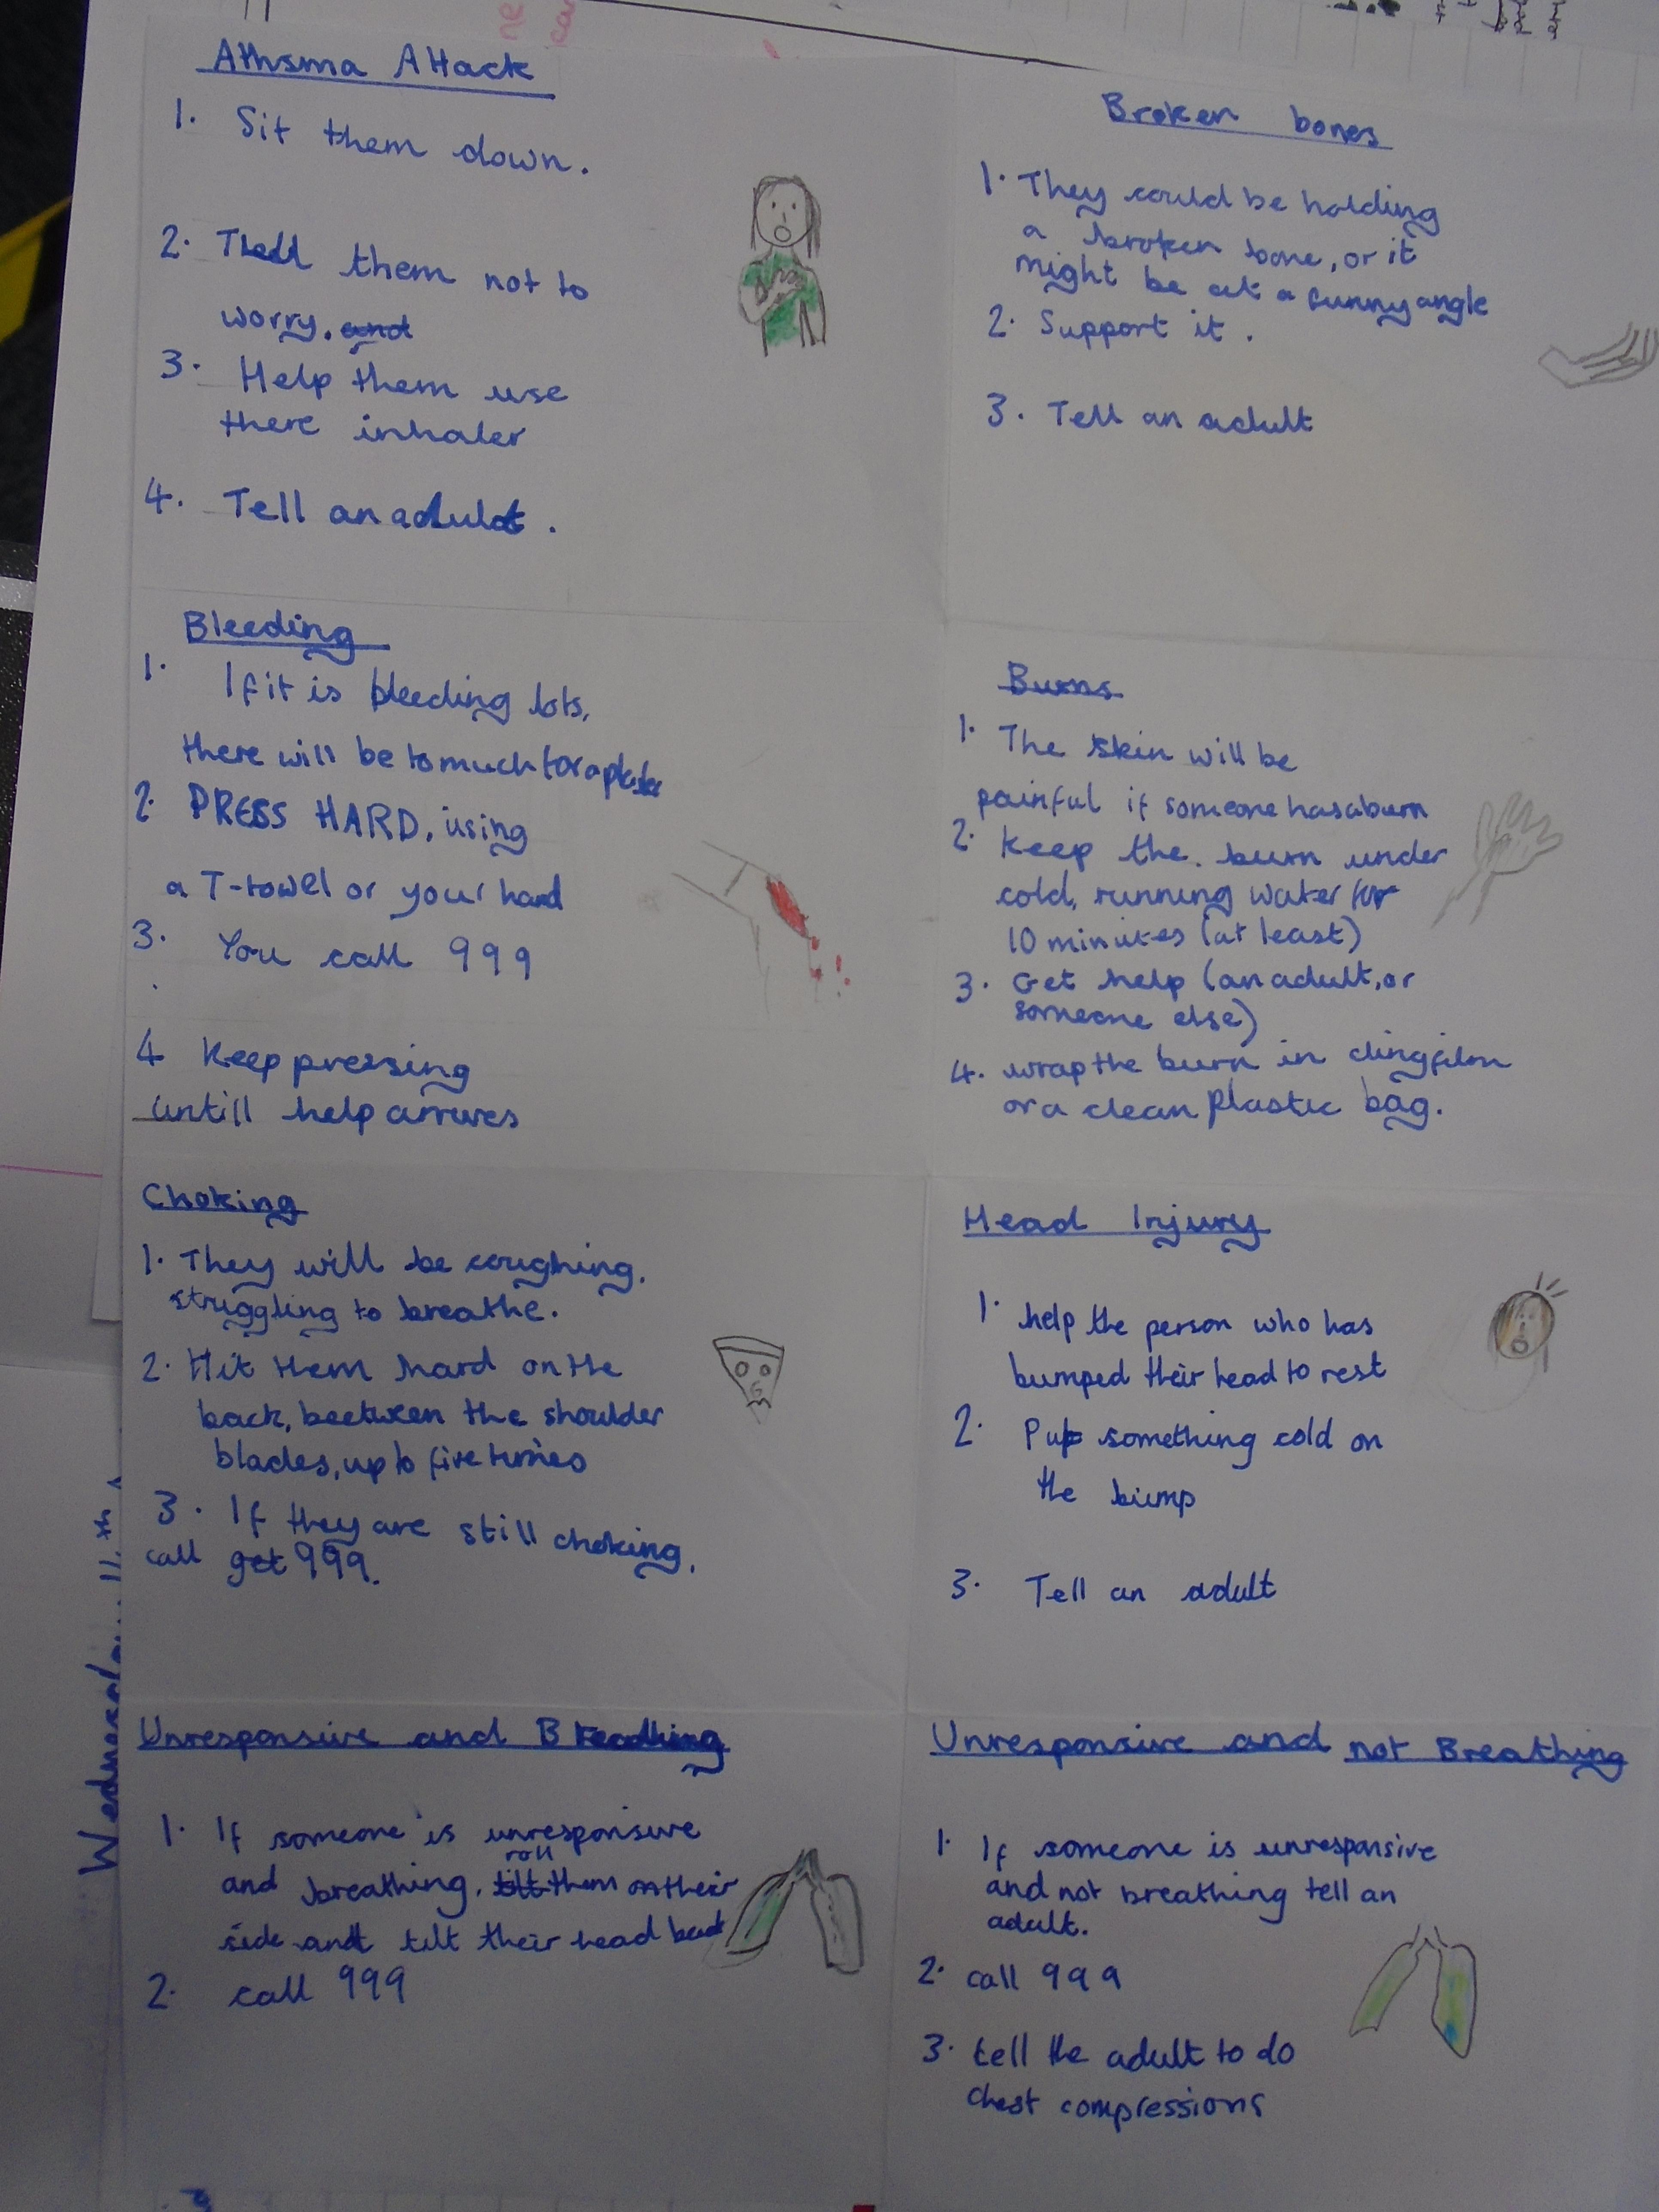 Athsma Attack
1. Sit them down.
2. Tell them not to
worry. and
3. Help them use
there inhaler
4. Tell an adult.
Broken bones
1. They could be holding
a broken bone, or it
might be at a funny angle
2. Support it.
3. Tell an adult
Bleeding
1. If it is bleeding lots,
there will be to much for a plaster
2. PRESS HARD, using
a T-towel or your hand
3. You call 999
4 Keep pressing
untill help arrives
Burns
1. The skin will be
painful if someone has a burn
2. Keep the burn under
cold, running water for
10 minutes (at least)
3. Get help (an adult, or
someone else)
4. wrap the burn in clingfilm
or a clean plastic bag.
Choking
1. They will be coughing,
struggling to breathe.
2. Hit them hard on the
back, beetween the shoulder
blades, up to five times
3. If they are still choking,
call get 999.
Head Injury
1. help the person who has
bumped their head to rest
2. Put something cold on
the bump
3. Tell an adult
Unresponsive and Breathing
1. If someone is unresponsive
and breathing, tilt roll them on their
side and tilt their head back
2. call 999
Unresponsive and not Breathing
1. If someone is unresponsive
and not breathing tell an
adult.
2. call 999
3. tell the adult to do
chest compressions
11th